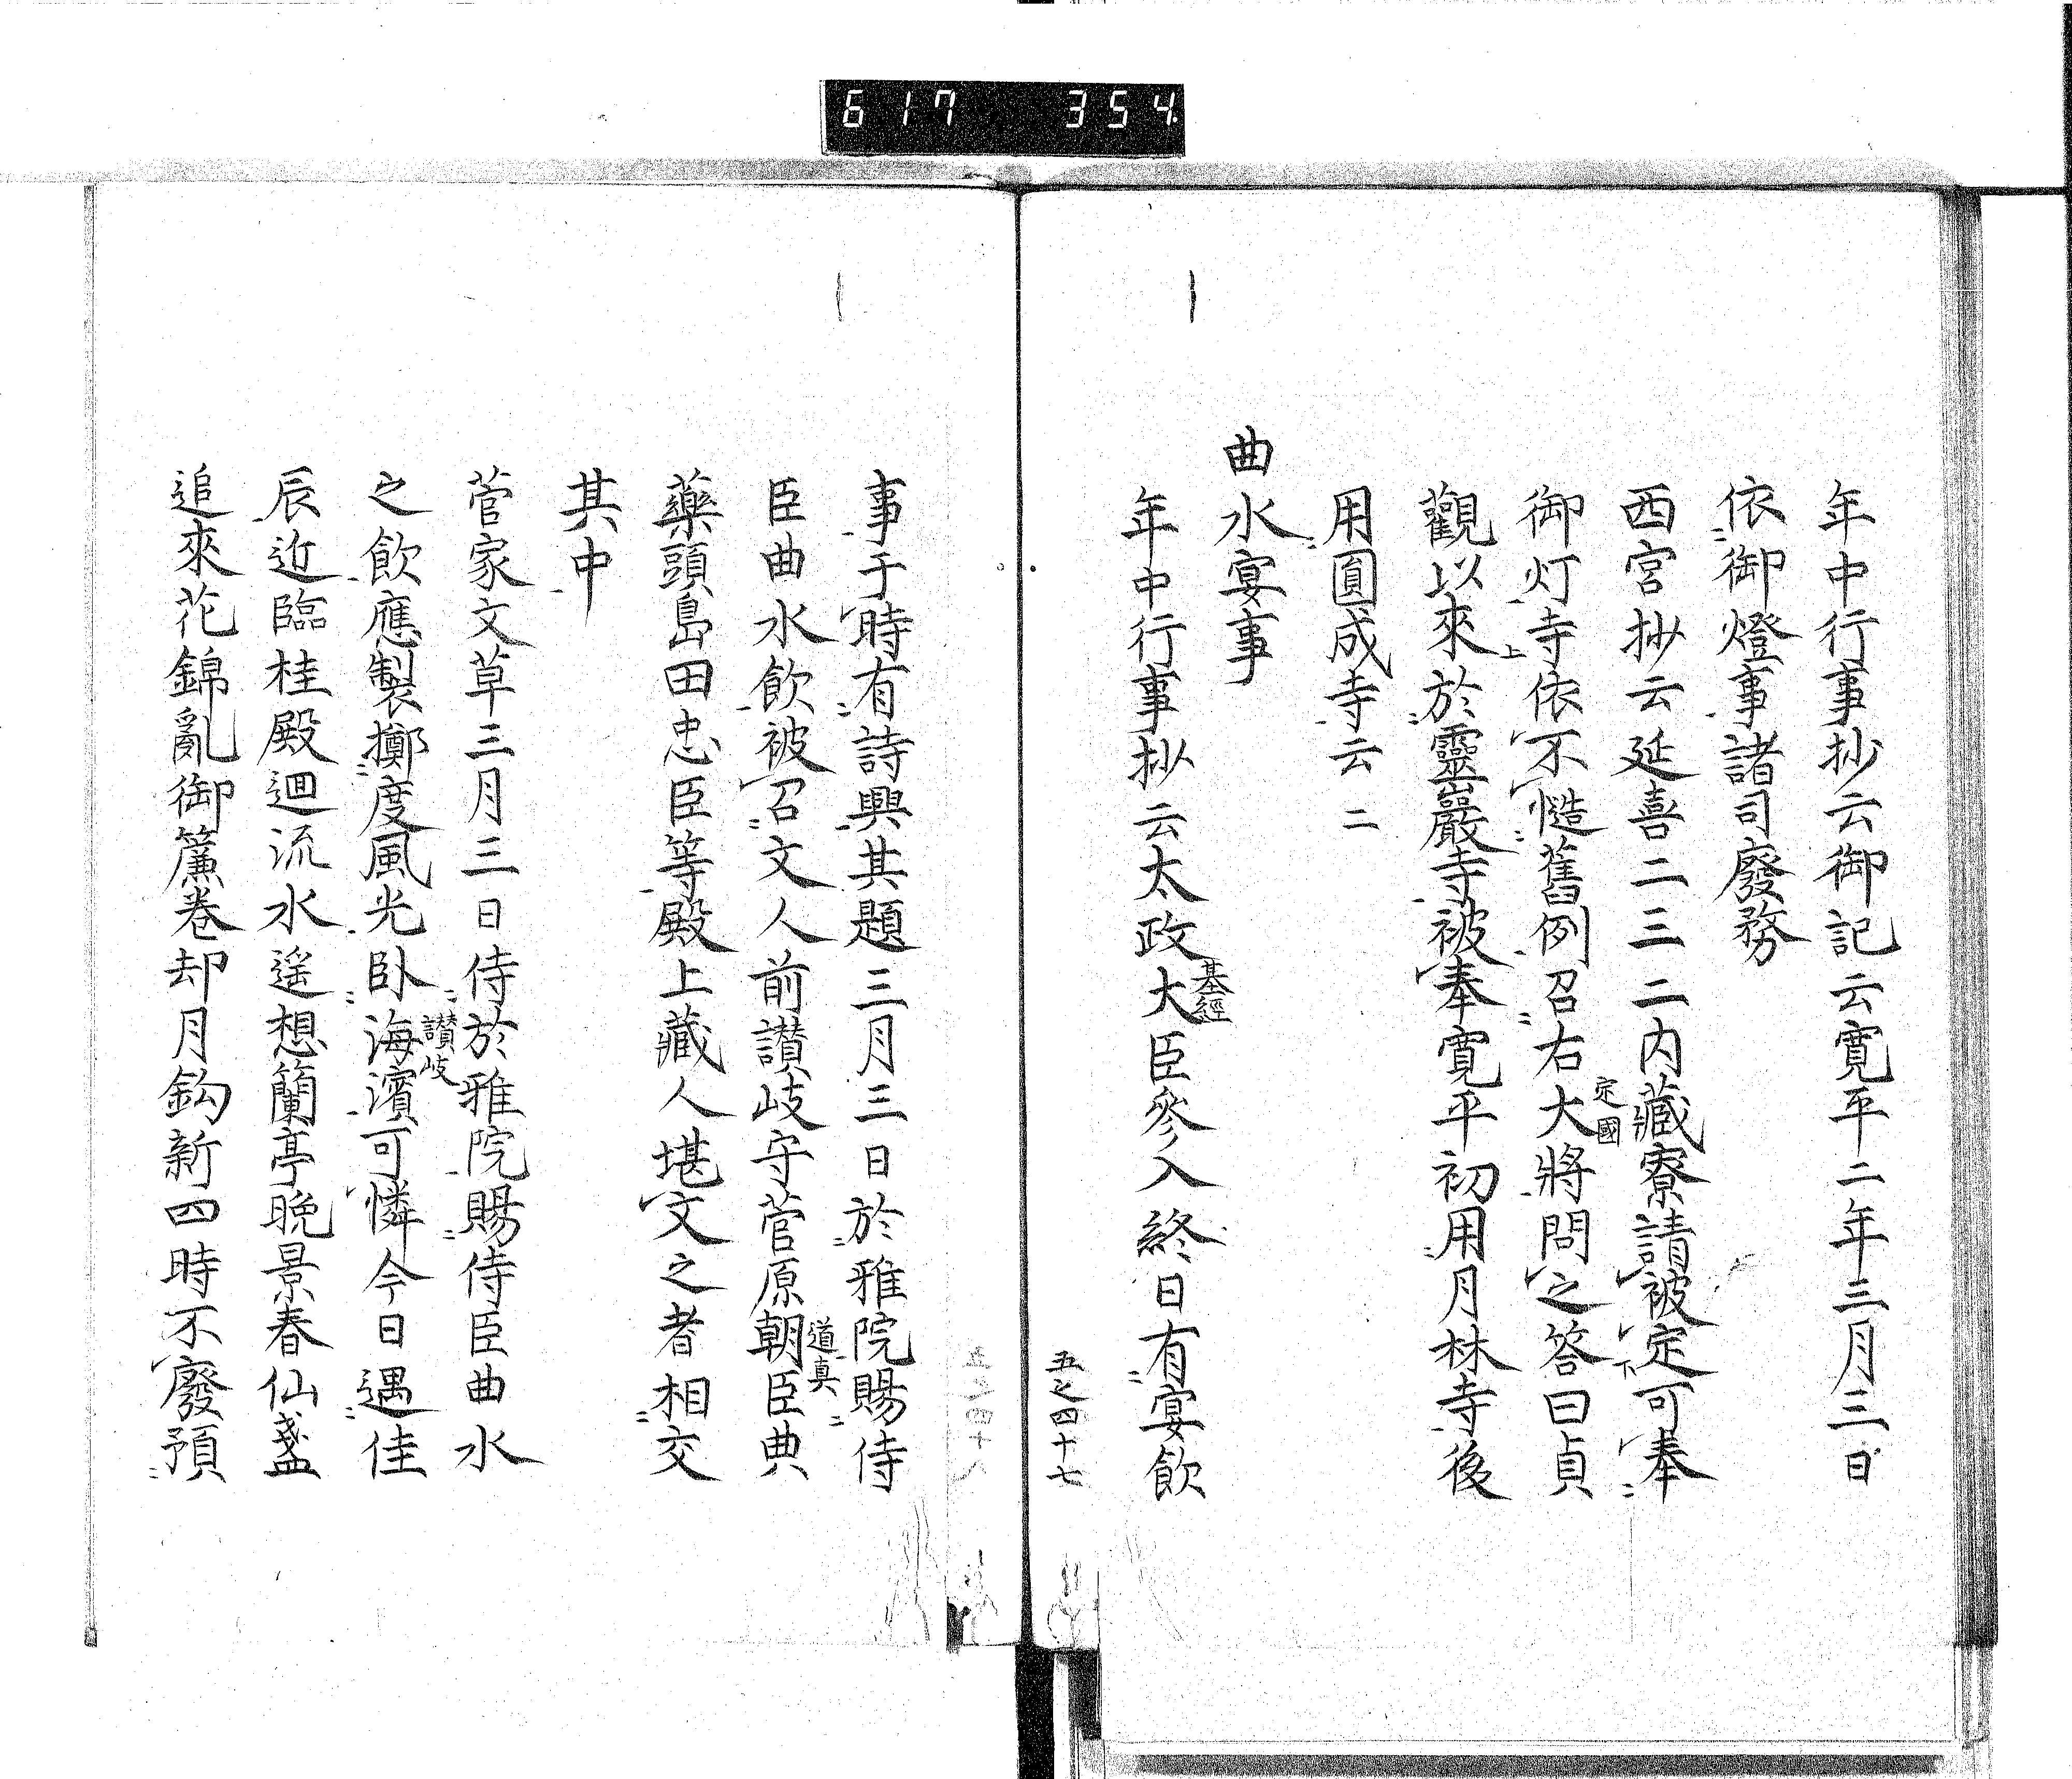 617 354.
年中行事抄云御記云寛平二年三月三日
依御燈事諸司廢務
西宮抄云延喜二三二内藏寮請被定可奉
御灯寺依不愆舊例召右大將問之答曰貞
定國
觀以來於靈巖寺被奉寛平初用月林寺後
用圓成寺云二
曲水宴事
年中行事抄云太政大臣參入終日有宴飲
基經
五之四十七
事于時有詩興其題三月三日於雅院賜侍
臣曲水飲被召文人前讃岐守菅原朝臣典
道真
藥頭島田忠臣等殿上藏人堪文之者相交
其中
菅家文草三月三日侍於雅院賜侍臣曲水
之飲應製擲度風光臥海濱可憐今日遇佳
讃岐
辰近臨桂殿迴流水遙想蘭亭晩景春仙盞
追來花錦亂御簾卷却月鈎新四時不廢預